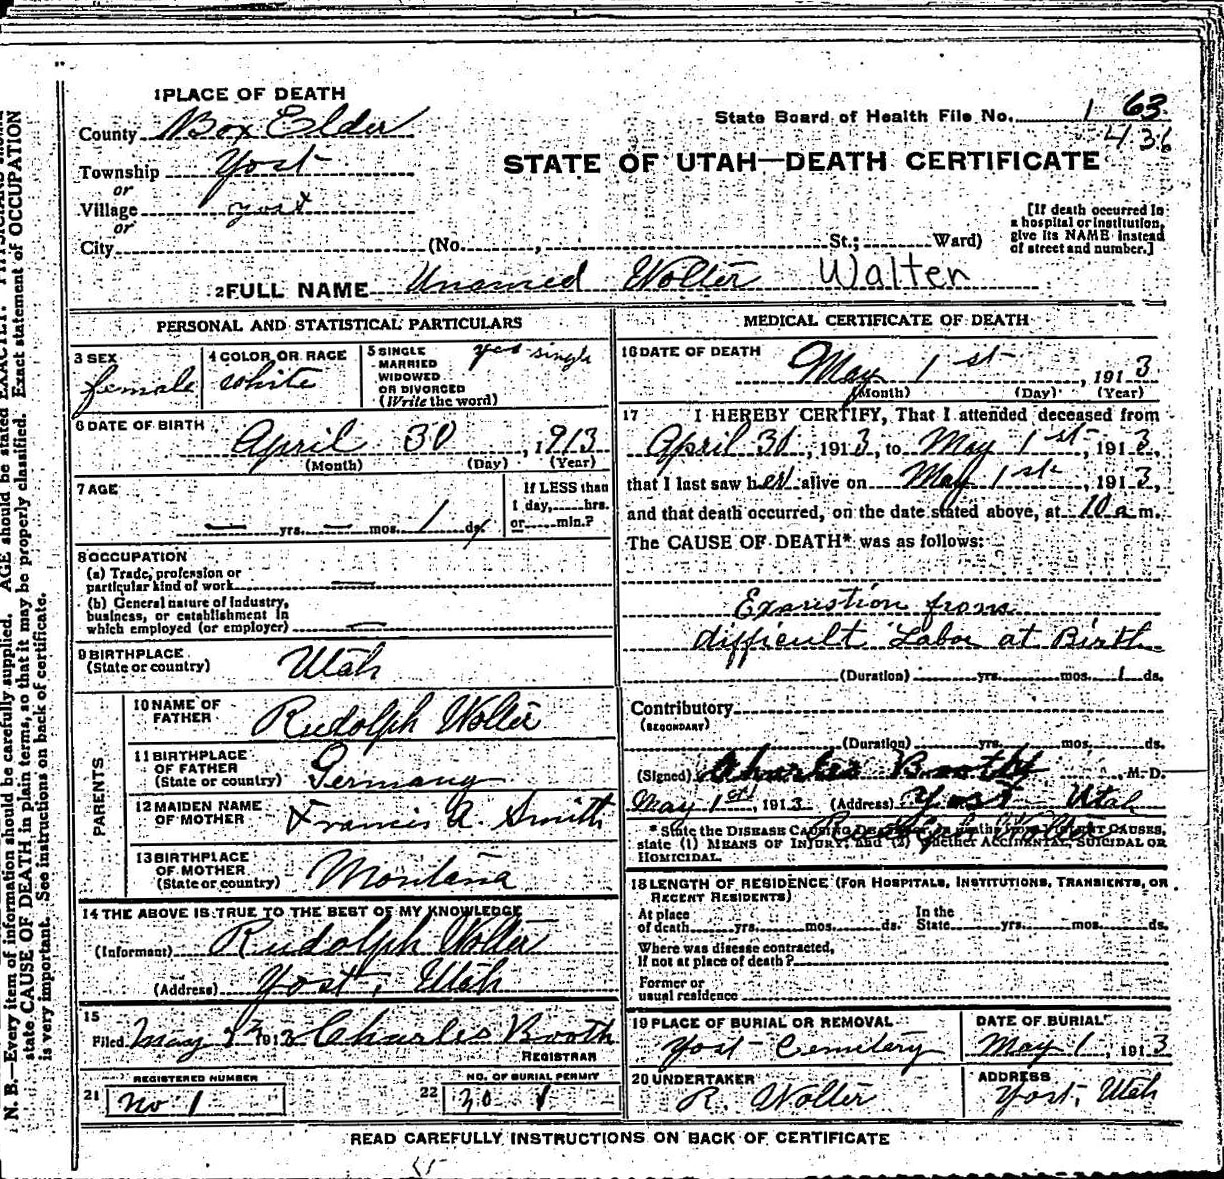 1 PLACE OF DEATH
County Box Elder
State Board of Health File No. 1 63
436
Township Yost
or
STATE OF UTAH—DEATH CERTIFICATE
Village Yost
or
City (No. , St.; Ward)
[If death occurred in a hospital or institution, give its NAME instead of street and number.]
2 FULL NAME Unamed Wolter Walter
PERSONAL AND STATISTICAL PARTICULARS
3 SEX
female
4 COLOR OR RACE
white
5 SINGLE
MARRIED
WIDOWED
OR DIVORCED
(Write the word)
yes single
6 DATE OF BIRTH
April 30, 1913
(Month) (Day) (Year)
7 AGE
— yrs. — mos. 1 ds.
If LESS than
1 day, hrs.
or min.?
8 OCCUPATION
(a) Trade, profession or
particular kind of work —
(b) General nature of industry,
business, or establishment in
which employed (or employer) —
9 BIRTHPLACE
(State or country)
Utah
PARENTS
10 NAME OF
FATHER
Rudolph Wolter
11 BIRTHPLACE
OF FATHER
(State or country)
Germany
12 MAIDEN NAME
OF MOTHER
Francis A. Smith
13 BIRTHPLACE
OF MOTHER
(State or country)
Montana
14 THE ABOVE IS TRUE TO THE BEST OF MY KNOWLEDGE
(Informant) Rudolph Wolter
(Address) Yost, Utah
15
Filed May 3 1913 Charles Booth
REGISTRAR
REGISTERED NUMBER
21 no 1
NO. OF BURIAL PERMIT
22
MEDICAL CERTIFICATE OF DEATH
16 DATE OF DEATH
May 1st, 1913
(Month) (Day) (Year)
17 I HEREBY CERTIFY, That I attended deceased from
April 30, 1913, to May 1st, 1913,
that I last saw her alive on May 1st, 1913,
and that death occurred, on the date stated above, at 10 a m.
The CAUSE OF DEATH* was as follows:
Exaustion from
difficult Labor at Birth
(Duration) yrs. mos. 1 ds.
Contributory
(SECONDARY)
(Duration) yrs. mos. ds.
(Signed) Charles Booth M. D.
May 1st, 1913 (Address) Yost Utah
Rudolph Wolter
* State the DISEASE CAUSING DEATH, or, in deaths from VIOLENT CAUSES,
state (1) MEANS OF INJURY; and (2) whether ACCIDENTAL, SUICIDAL OR
HOMICIDAL.
18 LENGTH OF RESIDENCE (FOR HOSPITALS, INSTITUTIONS, TRANSIENTS, OR
RECENT RESIDENTS)
At place
of death yrs. mos. ds.
In the
State yrs. mos. ds.
Where was disease contracted,
if not at place of death?
Former or
usual residence
19 PLACE OF BURIAL OR REMOVAL
Yost Cemetery
DATE OF BURIAL
May 1, 1913
20 UNDERTAKER
R. Wolter
ADDRESS
Yost, Utah
READ CAREFULLY INSTRUCTIONS ON BACK OF CERTIFICATE
N. B.—Every item of information should be carefully supplied. AGE should be stated EXACTLY. PHYSICIANS should
state CAUSE OF DEATH in plain terms, so that it may be properly classified. Exact statement of OCCUPATION
is very important. See instructions on back of certificate.